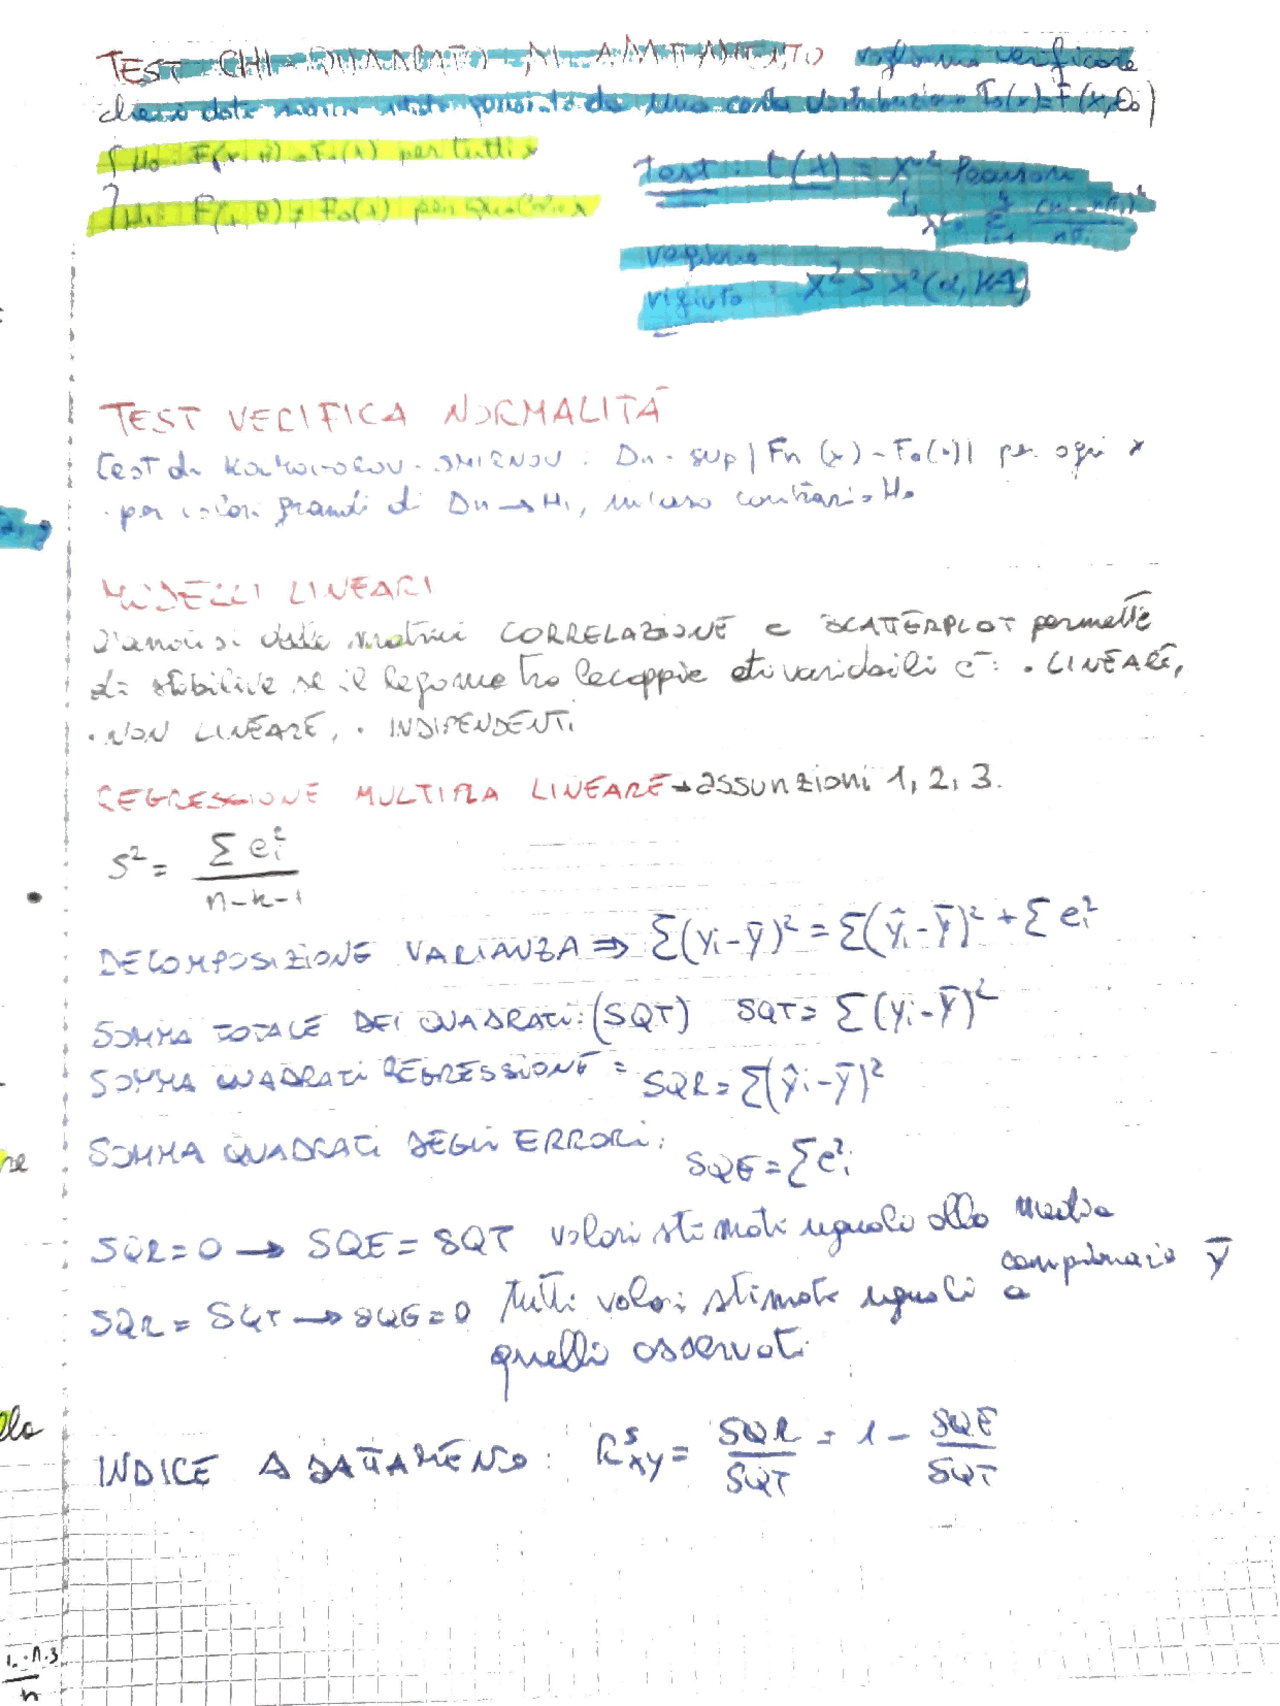 TEST CHI-QUADRATO DI ADATTAMENTO vogliamo verificare
che i dati siano stati da una certa distribuzione F₀(x)=F(x,θ₀)
{ H₀: F(x,θ)=F₀(x) per tutti x
H₁: F(x,θ)≠F₀(x) per qualche x
Test: t(x) = X² Pearson
regione
rifiuto: X² > X²(α, k-1)
TEST VERIFICA NORMALITÀ
test di KOLMOGOROV-SMIRNOV: Dn = sup|Fn(x)-F₀(x)| per ogni x
· per valori grandi di Dn → H₁, in caso contrario H₀
MODELLI LINEARI
L'analisi delle matrici CORRELAZIONE e SCATTERPLOT permette
di stabilire se il legame tra le coppie di variabili è: · LINEARE,
· NON LINEARE, · INDIPENDENTI
REGRESSIONE MULTIPLA LINEARE → assunzioni 1, 2, 3.
S² = Σ eᵢ² / n-k-1
DECOMPOSIZIONE VARIANZA ⇒ Σ(yᵢ-ȳ)² = Σ(ŷᵢ-ȳ)² + Σ eᵢ²
SOMMA TOTALE DEI QUADRATI: (SQT) SQT = Σ(yᵢ-ȳ)²
SOMMA QUADRATI REGRESSIONE = SQR = Σ(ŷᵢ-ȳ)²
SOMMA QUADRATI DEGLI ERRORI: SQE = Σeᵢ²
SQR=0 → SQE = SQT valori stimati uguali alla media
campionaria ȳ
SQR = SQT → SQE=0 tutti valori stimati uguali a
quelli osservati
INDICE ADATTAMENTO: R²xy = SQR/SQT = 1 - SQE/SQT